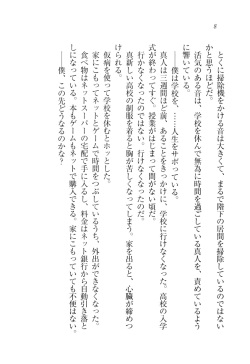 8
とくに掃除機をかける音は大きくて、まるで階下の居間を掃除しているのではないかと思うほどだ。
活気のある音は、学校を休んで無為に時間を過ごしている真人を、責めているように響いている。
――僕は学校を、……人生をサボっている。
真人は三週間ほど前、あることをきっかけに、学校に行けなくなった。高校の入学式が終わってすぐ、授業がはじまって間がない頃だ。
行かなくなったのではない。行けなくなったのだ。
真新しい高校の制服を着ると胸が苦しくなってしまう。家を出ると、心臓が締めつけられる。
仮病を使って学校を休むとホッとした。
家にこもってネットとゲームで時間をつぶしているうち、外出ができなくなった。
食べ物はネットスーパーの宅配で手に入るし、料金はネット銀行から自動引き落としになっている。本もゲームもネットで購入できる。家にこもっていても不便はない。
――僕、この先どうなるのかな？